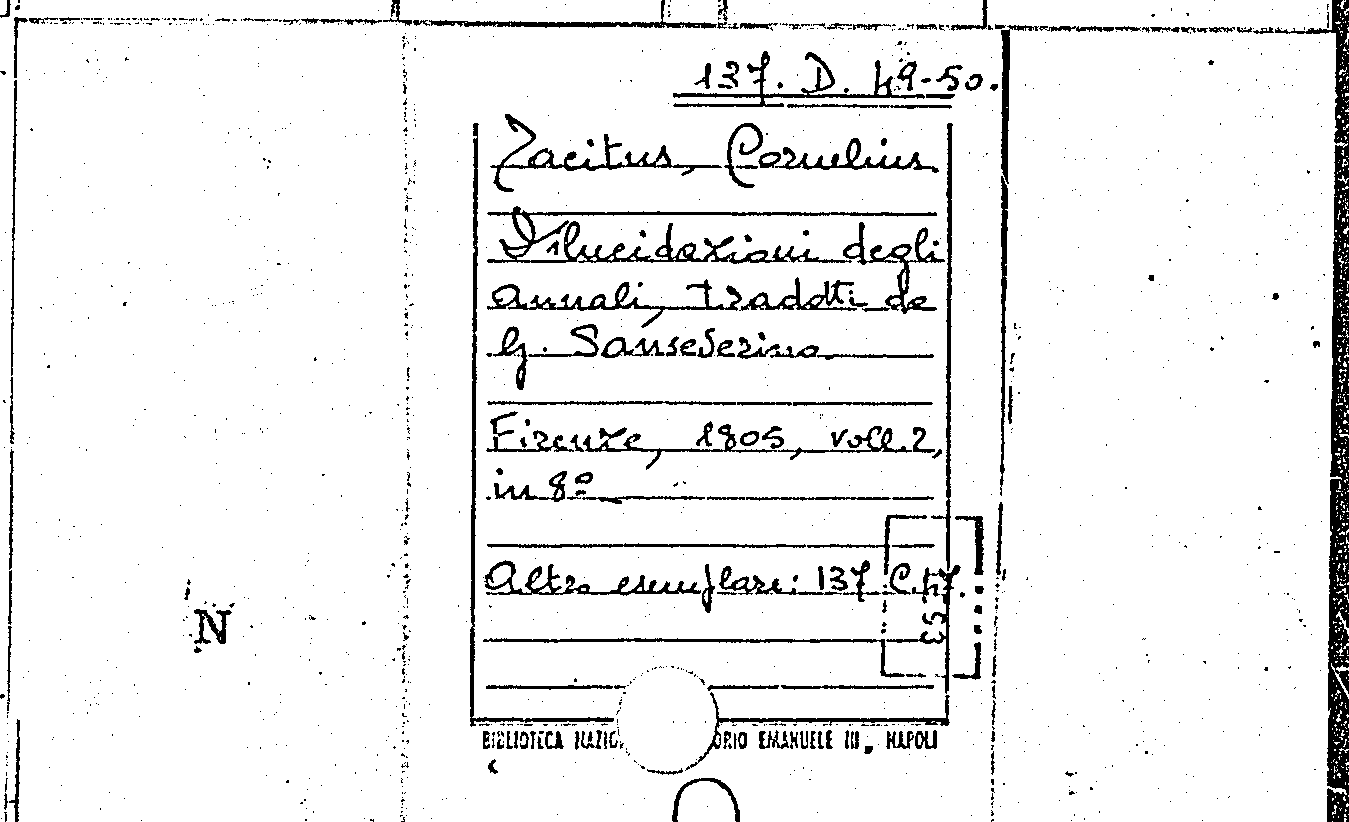 137. D. 49-50.
Tacitus, Cornelius
Dilucidazioni degli
annali, tradotti da
G. Sanseverino.
Firenze, 1805, voll. 2,
in 8º
Altro esemplare: 137 C. 47.
53
N
BIBLIOTECA NAZIO ORIO EMANUELE III, NAPOLI